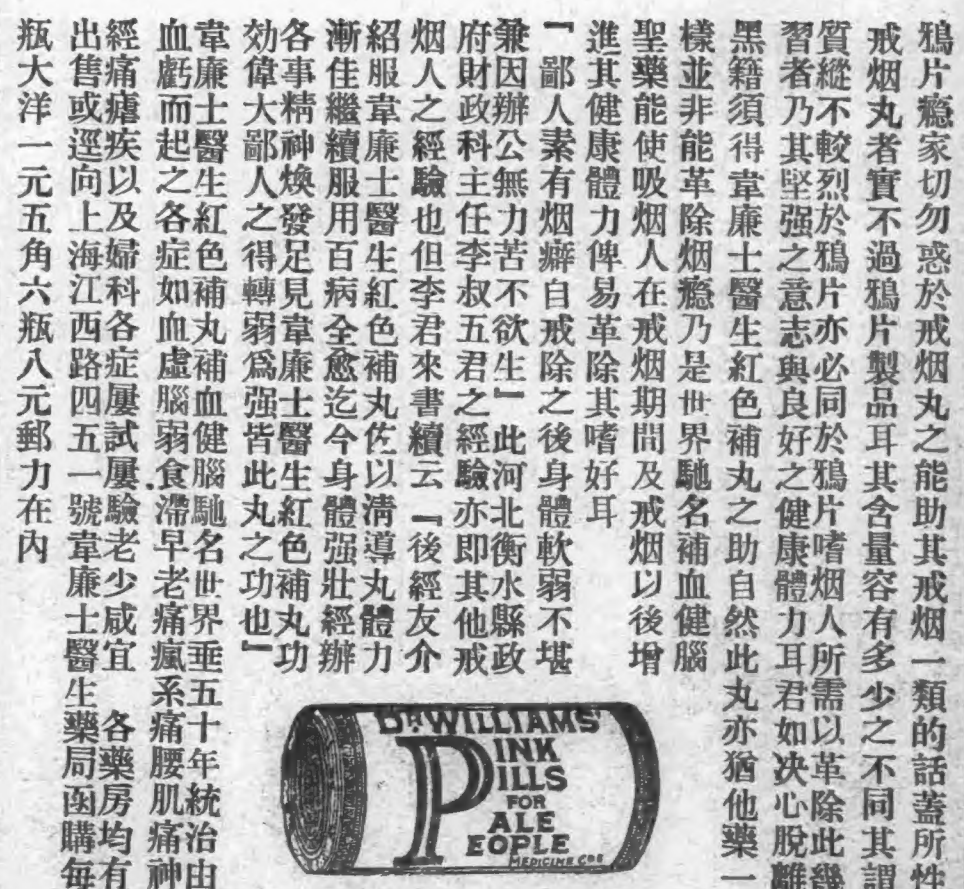 鴉片瘾家切勿惑於戒烟丸之能助其戒烟一類的話蓋所性
戒烟丸者實不過鴉片製品耳其含量容有多少之不同其謂
質縱不較烈於鴉片亦必同於鴉片嗜烟人所需以革除此幾
習者乃其堅强之意志與良好之健康體力耳君如决心脫離
黑籍須得韋廉士醫生紅色補丸之助自然此丸亦猶他藥一
樣並非能革除烟瘾乃是世界馳名補血健腦
聖藥能使吸烟人在戒烟期間及戒烟以後增
進其健康體力俾易革除其嗜好耳
『鄙人素有烟癖自戒除之後身體軟弱不堪
兼因辦公無力苦不欲生』此河北衡水縣政
府財政科主任李叔五君之經驗亦即其他戒
烟人之經驗也但李君來書續云『後經友介
紹服韋廉士醫生紅色補丸佐以淸導丸體力
漸佳繼續服用百病全愈迄今身體强壯經辦
各事精神煥發足見韋廉士醫生紅色補丸功
効偉大鄙人之得轉弱爲强皆此丸之功也』
韋廉士醫生紅色補丸補血健腦馳名世界垂五十年統治由
血虧而起之各症如血虛腦弱食滯早老痛瘋系痛腰肌痛神
經痛瘧疾以及婦科各症屢試屢驗老少咸宜 各藥房均有
出售或逕向上海江西路四五一號韋廉士醫生藥局函購每
瓶大洋一元五角六瓶八元郵力在內
DR. WILLIAMS'
PINK
PILLS
FOR
PALE
PEOPLE
MEDICINE CO